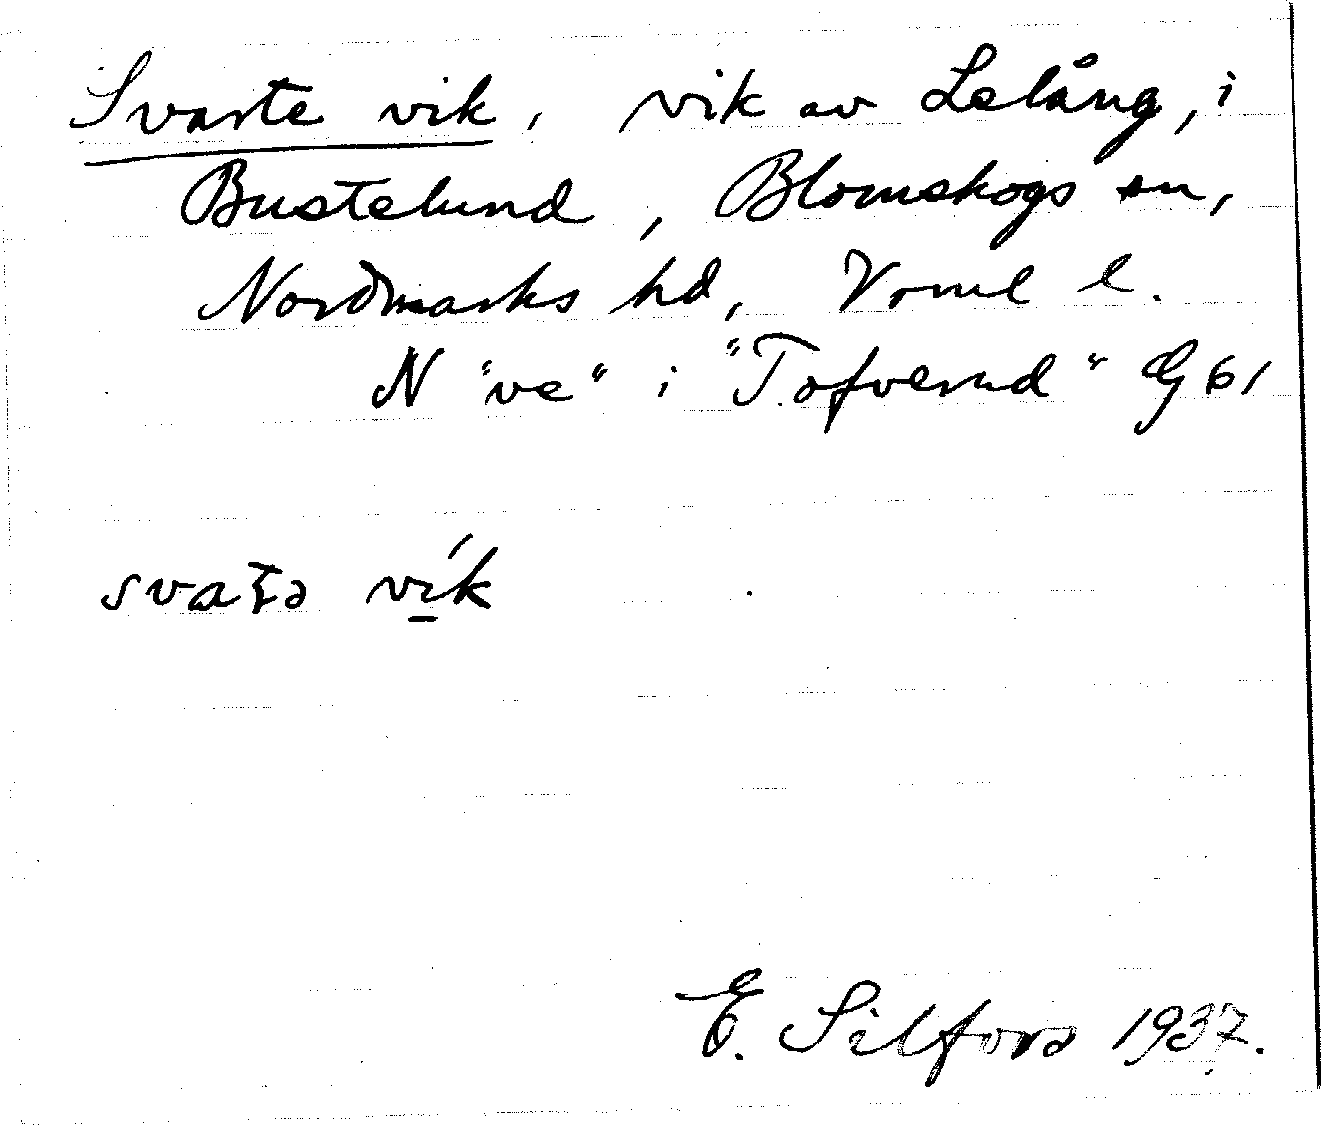 Svarte vik, vik av Lelång, i
Bustelund, Blomskogs sn,
Nordmarks hd, Vrml l.
N "ve" i "Tofverud" G 61
svaʈə vík
E. Silfors 1937.